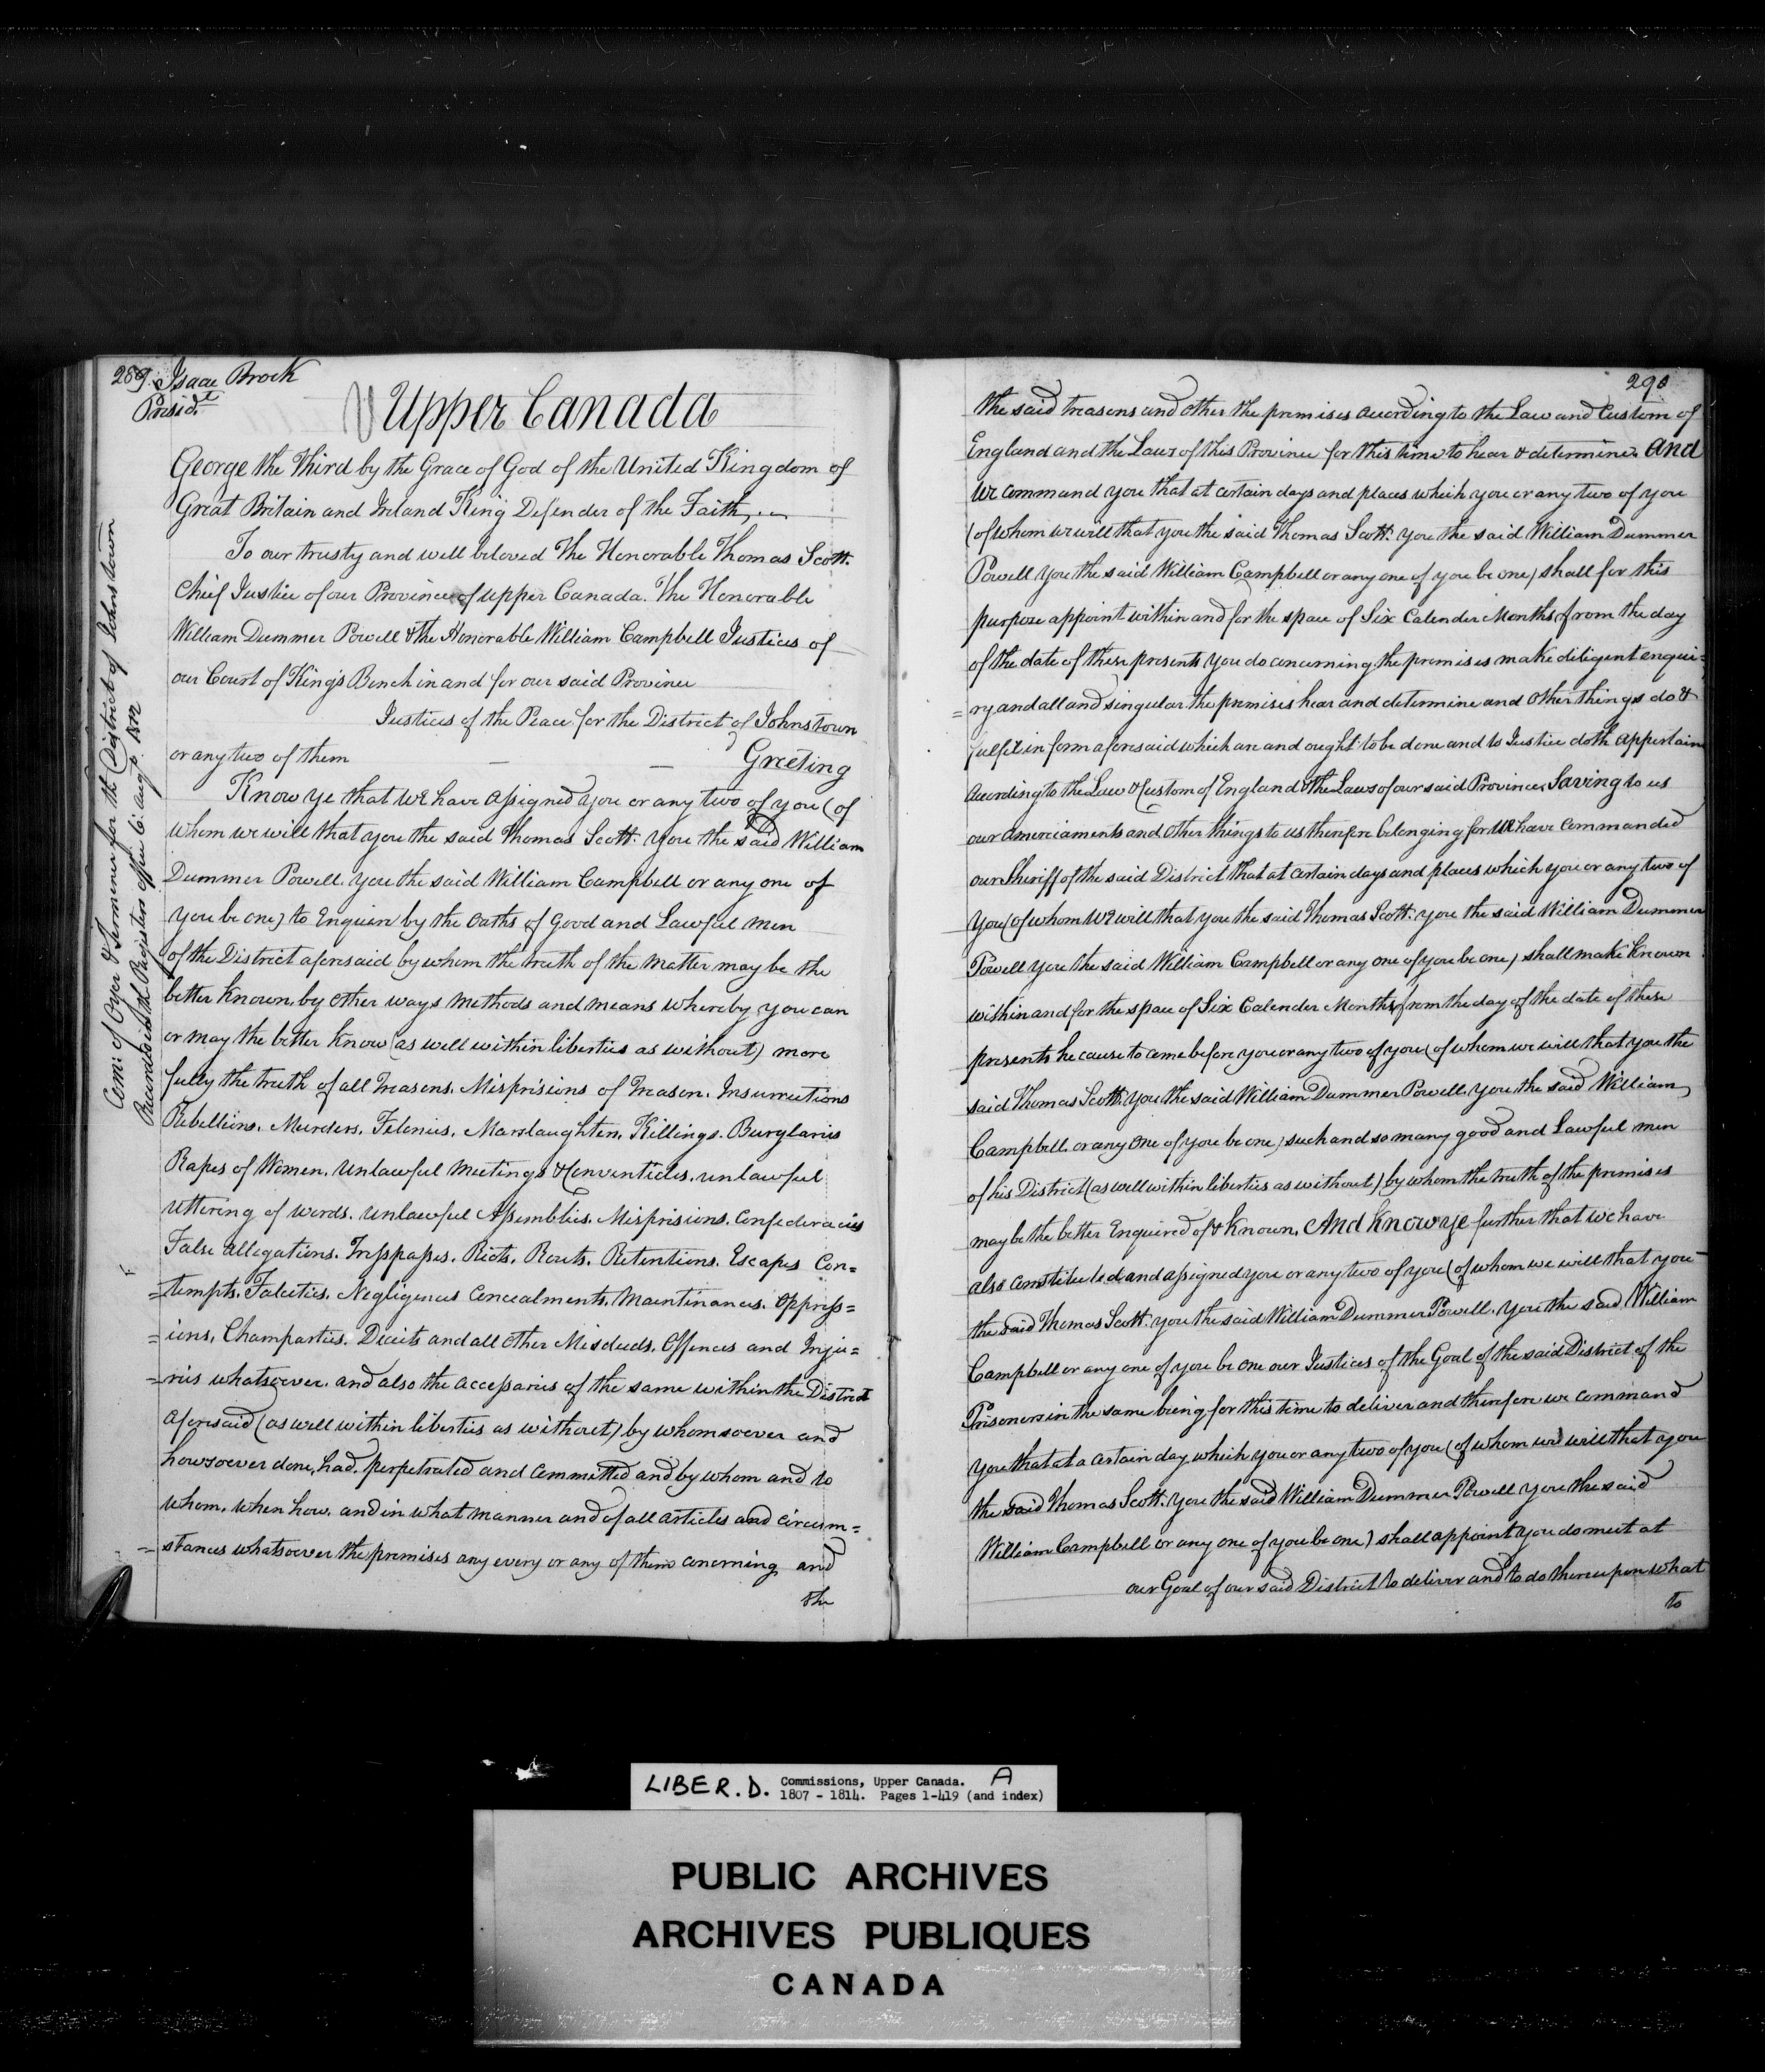 289. Isaac Brock
Presidt
Upper Canada
George the Third by the Grace of God of the United Kingdom of
Great Britain and Ireland King Defender of the Faith,
To our trusty and well beloved The Honorable Thomas Scott.
Chief Justice of our Province of Upper Canada. The Honorable
William Dummer Powell & the Honorable William Campbell Justices of
our Court of Kings Bench in and for our said Province
Justices of the Peace for the District of Johnstown
or any two of them — — Greeting
Know ye that We have assigned you or any two of you (of
whom we will that you the said Thomas Scott. you the said William
Dummer Powell. you the said William Campbell or any one of
you be one) to Enquire by the oaths of Good and Lawful men
of the District aforesaid by whom the truth of the Matter may be the
better known, by other ways methods and means whereby you can
or may the better know (as well within liberties as without) more
fully the truth of all Treasons. Misprisions of Treason. Insurrections
Rebellions. Murders. Felonies. Manslaughters. Killings. Burglaries
Rapes of Women. Unlawful meetings & Conventicles. unlawful
uttering of words. unlawful Assemblies. Misprisions. Confederacies
False allegations. Tresspasses. Riots. Routs. Retentions. Escapes Con=
=tempts. Falcities. Negligences Concealments. Maintinances. Oppress=
=ions. Champarties. Deceits and all other Misdeeds. Offences and Inju=
=ries whatsoever. and also the accessaries of the same within the District
aforesaid (as well within liberties as without) by whomsoever and
howsoever done, had, perpetrated and committed and by whom and to
whom, when how, and in what manner and of all articles and circum=
=stances whatsoever the premises any every or any of them concerning and
the
Com: of Oyer & Terminer for the District of Johnstown
Recorded in the Registers office 6: augt. 1812
290
the said treasons and other the premises according to the Law and Custom of
England and the Laws of this Province for this time to hear & determine. And
We command you that at certain days and places which you or any two of you
(of whom we will that you the said Thomas Scott. you the said William Dummer
Powell you the said William Campbell or any one of you be one) shall for this
purpose appoint within and for the space of Six Calender Months from the day
of the date of these presents you do concerning the premises make diligent enqui=
=ry and all and singular the premises hear and determine and other things do &
fulfil in form aforesaid which are and ought to be done and to Justice doth appertain
according to the Law & Custom of England & the Laws of our said Province, Saving to us
our amerciaments and other things to us therefore belonging for We have commanded
our Sheriff of the said District that at certain days and places which you or any two of
you (of whom We will that you the said Thomas Scott. you the said William Dummer
Powell you the said William Campbell or any one of you be one) shall make known
within and for the space of Six Calender Months from the day of the date of these
presents he cause to come before you or any two of you (of whom we will that you the
said Thomas Scott. you the said William Dummer Powell. you the said William
Campbell. or any one of you be one) such and so many good and Lawful men
of his District (as well within liberties as without) by whom the truth of the premises
may be the better Enquired of & known. And know ye further that We have
also constituted and assigned you or any two of you (of whom we will that you
the said Thomas Scott. you the said William Dummer Powell. you the said William
Campbell or any one of you be one our Justices of the Goal of the said District of the
Prisoners in the same being for this time to deliver and therefore we command
you that at a certain day which you or any two of you (of whom we will that you
the said Thomas Scott. you the said William Dummer Powell you the said
William Campbell or any one of you be one) shall appoint you do meet at
our Goal of our said District to deliver and to do thereupon what
to
LIBER. D. Commissions, Upper Canada. A
1807 - 1814. Pages 1-419 (and index)
PUBLIC ARCHIVES
ARCHIVES PUBLIQUES
CANADA